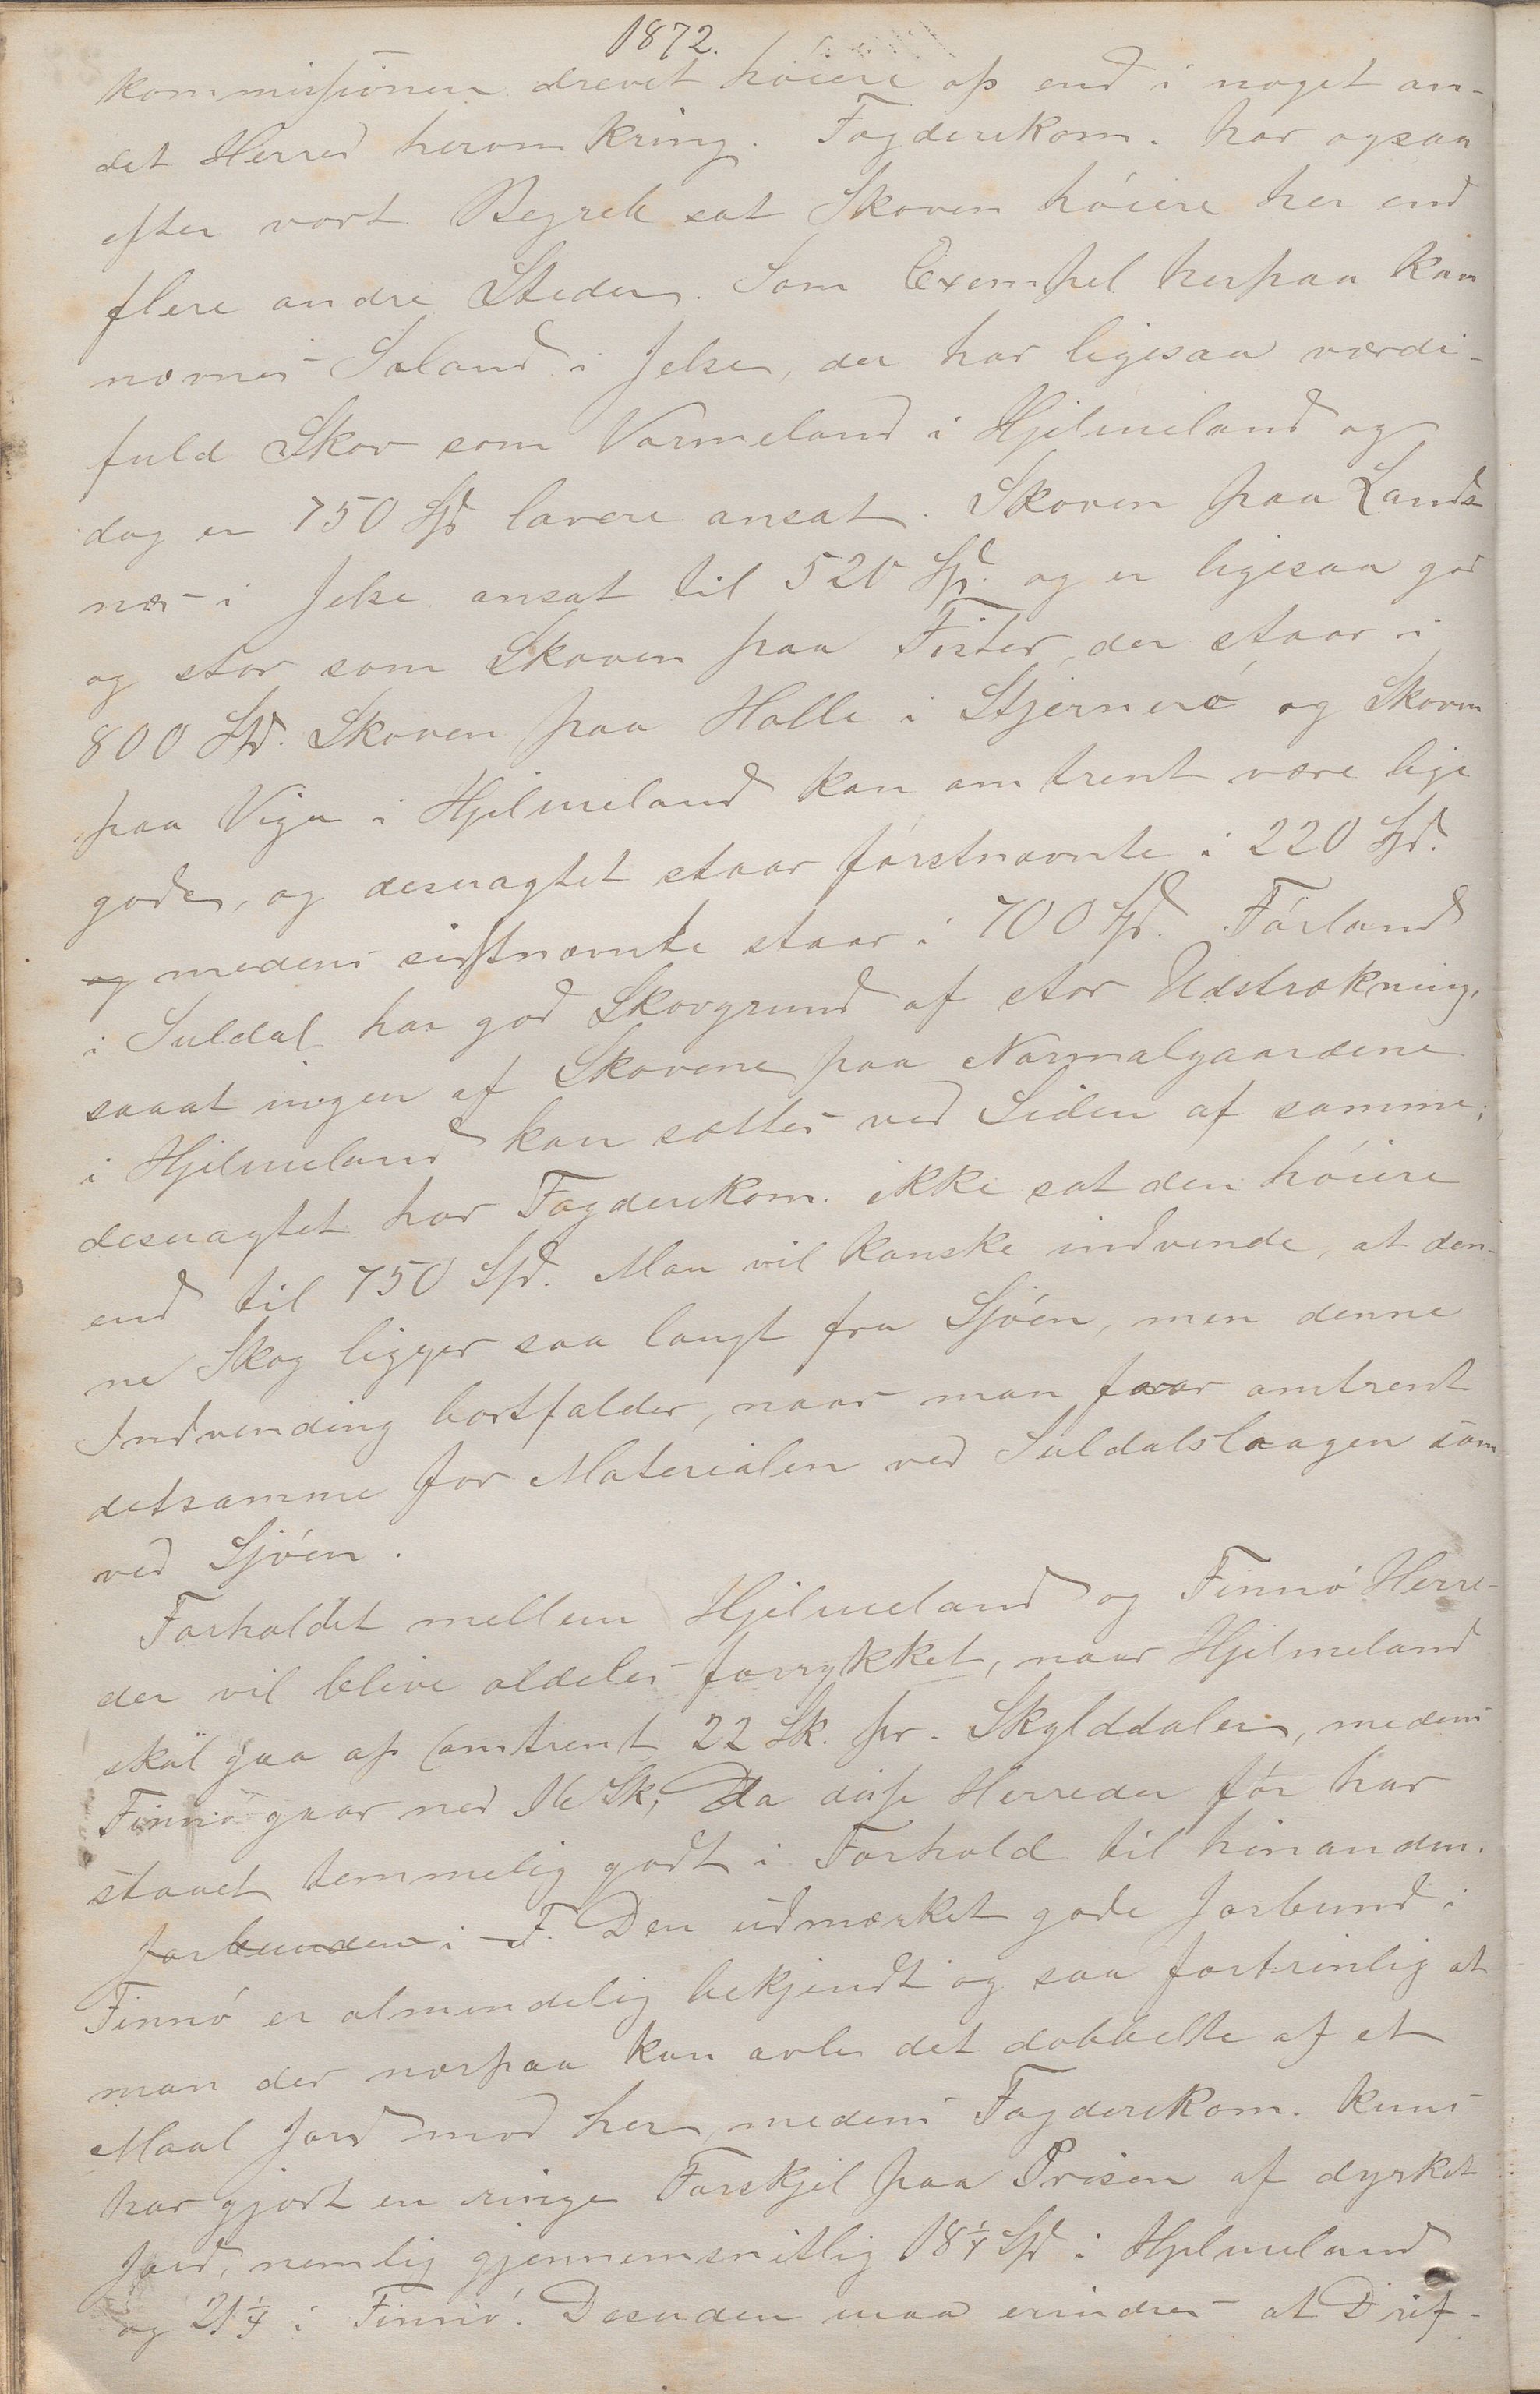 1872.
kommissionen drevet høiere op end i noget an-
det Herred herom kring. Fogderikom. har ogsaa
efter vort Begreb sat Skoven høiere her end
flere andre Steder. Som Exempel herpaa kan
nævnes Saland i Jelse, der har ligesaa værdi-
fuld Skov som Vormeland i Hjelmeland og
dog er 750 Spd lavere ansat. Skoven paa Lands-
næs i Jelse ansat til 520 Spd. og er ligesaa god
og stor som Skoven paa Fister, der staar i
800 Spd. Skoven paa Halle i Stjernerø og Skoven
paa Viga i Hjelmeland kan omtrent være lige
gode, og desuagtet staar førstnævnte i 220 Spd.
og medens sidstnævnte staar i 700 Spd. Førland
i Suldal har god Skovgrund af stor Udstrækning,
saaat ingen af Skovene paa Normalgaardene
i Hjelmeland kan sættes ved Siden af samme;
desuagtet har Fogderikom. ikke sat den høiere
end til 750 Spd. Man vil kanske indvende, at den-
ne Skog ligger saa langt fra Sjøen, men denne
Indvending bortfalder, naar man faaar omtrent
detsamme for Materialen ved Suldalslaagen som
ved Sjøen.
Forholdet mellem Hjelmeland og Finnø Herre-
der vil blive aldeles forrykket, naar Hjelmeland
skal gaa op (omtrent 22 Sk. pr. Skylddaler, medens
Finnø gaar ned 16 Sk; Da disse Herreder før har
staaet temmelig godt i Forhold til hinanden.
Jorbunden i F. Den udmærket gode Jorbund i
Finnø er almindelig bekjendt og saa fortrinlig at
man der nærpaa kan avle det dobbelte af et
Maal Jord mod her, medens Fogderikom. kuns
har gjort en ringe Forskjel paa Prisen af dyrket
Jord, nemlig gjennemsnitlig 18 1/4 Spd i Hjelmeland
og 21 1/4 i Finnø. Desuden maa erindres at Drif-